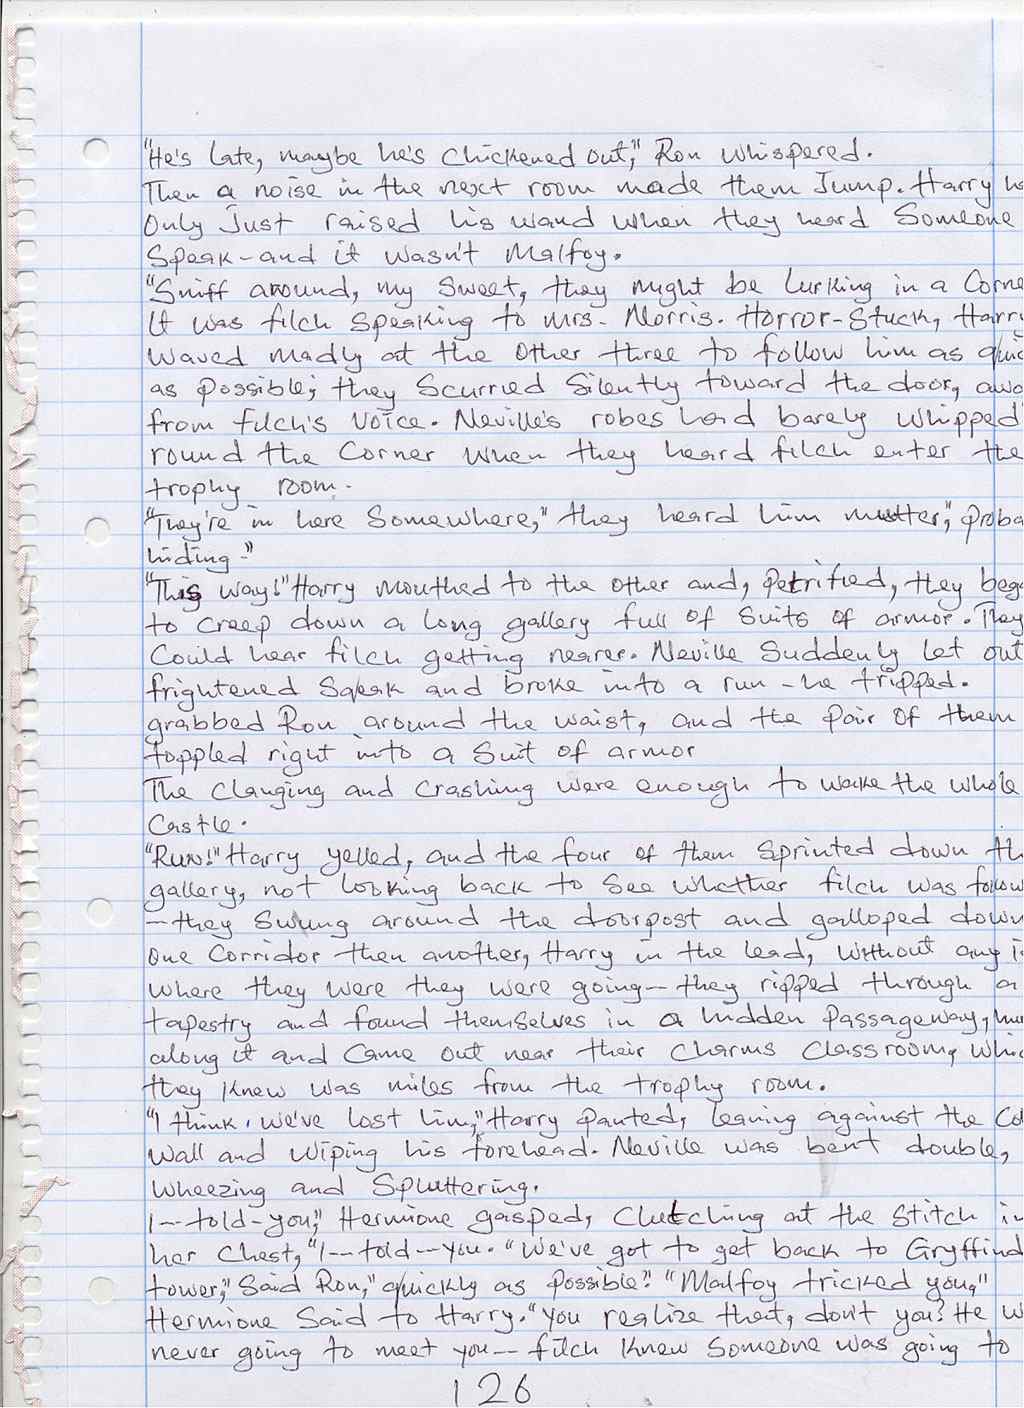 "He's late, maybe he's chickened out," Ron whispered.
Then a noise in the next room made them Jump. Harry h
Only Just raised his wand when they heard Someone
Speak - and it wasn't Malfoy.
"Sniff around, my Sweet, they might be lurking in a Corne
It was filch speaking to Mrs. Norris. Horror-Stuck, Harry
waved madly at the Other three to follow him as quic
as possible; they Scurried Silently toward the door, awa
from filch's voice. Neville's robes had barely whipped
round the Corner when they heard filch enter the
trophy room.
"They're in here Somewhere," they heard him mutter," proba
hiding."
"This way!" Harry mouthed to the other and, petrified, they bega
to creep down a long gallery full of Suits of armor. They
Could hear filch getting nearer. Neville Suddenly let out
frightened Sqeak and broke into a run - he tripped.
grabbed Ron around the waist, and the pair of them
toppled right into a Suit of armor
The Clanging and Crashing were enough to wake the whole
Castle.
"Run!" Harry yelled, and the four of them Sprinted down th
gallery, not looking back to See whether filch was follow
—they Swung around the doorpost and galloped down
one Corridor then another, Harry in the lead, without any i
where they were they were going— they ripped through a
tapestry and found themselves in a hidden Passageway, hur
along it and Came out near their Charms Classroom, whic
they knew was miles from the trophy room.
"I think we've lost him," Harry panted, leaning against the Co
wall and wiping his forehead. Neville was bent double,
wheezing and Spluttering.
I—told—you," Hermione gasped, Clutching at the Stitch in
her Chest, "I—told—you. "We've got to get back to Gryffind
tower," Said Ron," quickly as possible". "Malfoy tricked you,"
Hermione Said to Harry. "You realize that, don't you? He w
never going to meet you— filch knew Someone was going to
126